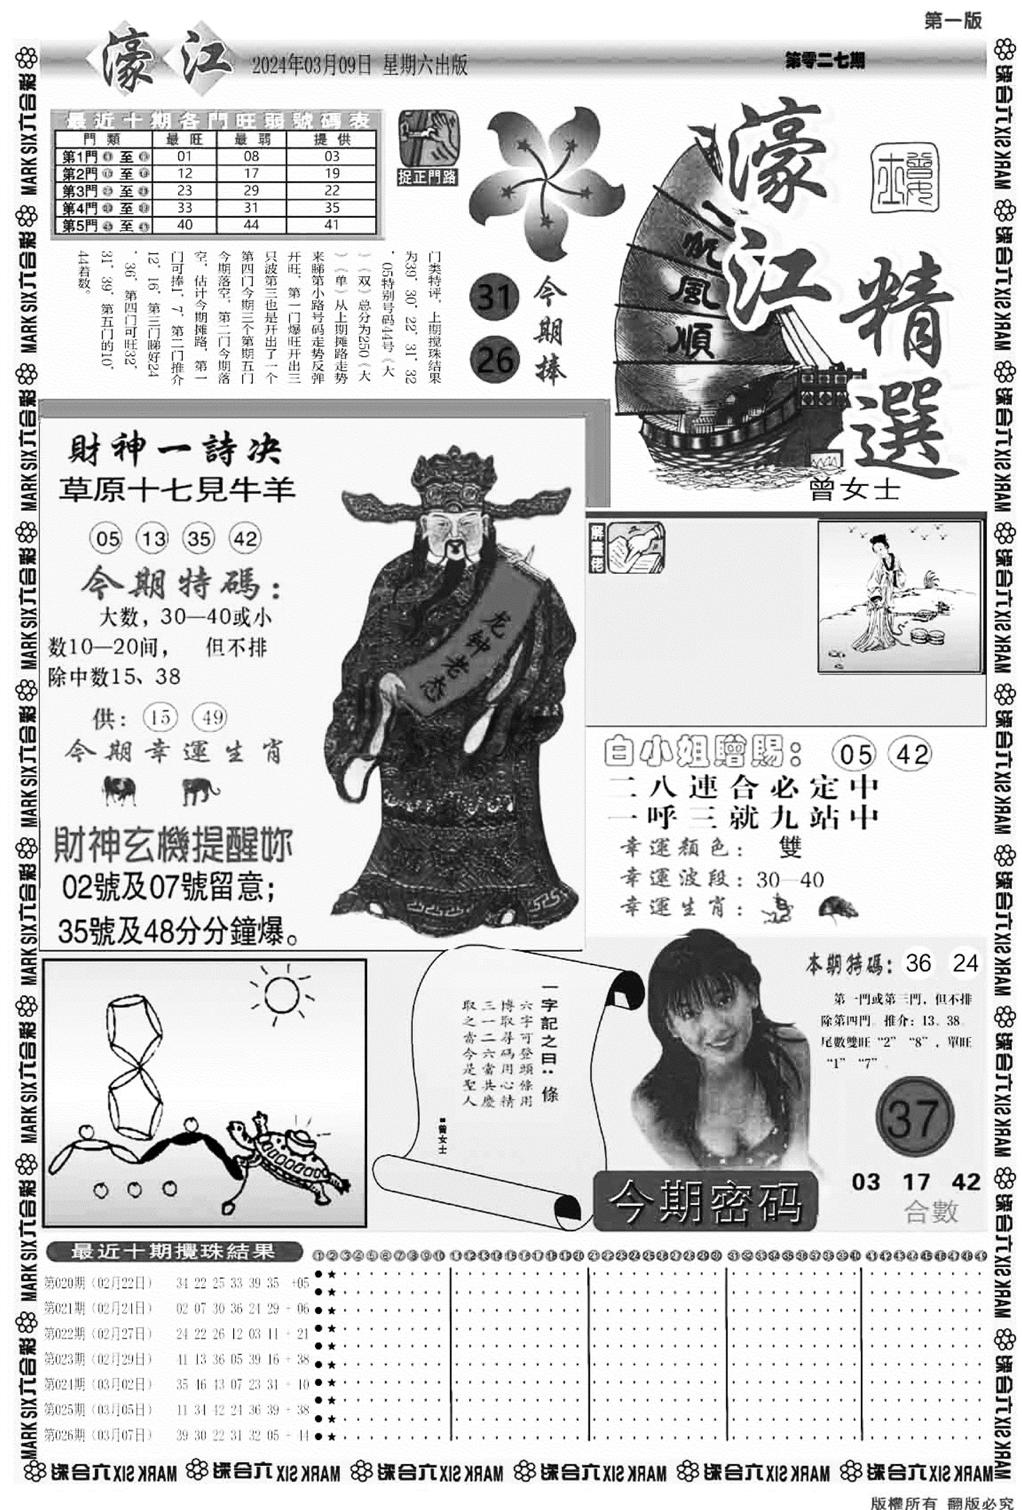 第一版
濠江
2024年03月09日 星期六出版
第零二七期
最近十期各門旺弱號碼表
門類 最旺 最弱 提供
第1門 至 01 08 03
第2門 至 12 17 19
第3門 至 23 29 22
第4門 至 33 31 35
第5門 至 40 44 41
捉正門路
门类特评，上期搅珠结果
为39’30’22’31’32
’05特别号码44号（大
）（双）总分为250（大
）（单）从上期摊路走势
来睇第小路号码走势反弹
开旺，第一门爆旺开出三
只波第三也是开出了一个
第四门今期三个第期五门
今期落空，第二门今期落
空，估计今期摊路，第一
门可捧1’7，第二门推介
12’16，第三门睇好24
’36，第四门可旺32’
31’39，第五门的10’
44着数。
今期捧
31
26
濠江
精選
曾女士
一帆風順
財神一詩决
草原十七見牛羊
05 13 35 42
今期特碼：
大数，30—40或小
数10—20间， 但不排
除中数15、38
供：15 49
今期幸運生肖
財神玄機提醒妳
02號及07號留意；
35號及48分分鐘爆。
龙钟老态
解畫佬
白小姐贈賜：05 42
二八連合必定中
一呼三就九站中
幸運顏色： 雙
幸運波段：30—40
幸運生肖：
一字記之曰：條
六字可登頭條用
博取尋碼用心精
三一二六當共慶
取之當今是聖人
曾女士
本期特碼：36 24
第一門或第三門，但不排
除第四門。推介：13、38
尾數雙旺“2”“8”，單旺
“1”“7”。
37
03 17 42
合數
今期密码
最近十期攪珠結果
①②③④⑤⑥⑦⑧⑨⑩⑪⑫⑬⑭⑮⑯⑰⑱⑲⑳㉑㉒㉓㉔㉕㉖㉗㉘㉙㉚㉛㉜㉝㉞㉟㊱㊲㊳㊴㊵㊶㊷㊸㊹㊺㊻㊼㊽㊾
第020期（02月22日） 34 22 25 33 39 35 +05
第021期（02月24日） 02 07 30 36 24 29 + 06
第022期（02月27日） 24 22 26 12 03 11 + 21
第023期（02月29日） 41 13 36 05 39 16 + 38
第024期（03月02日） 35 46 43 07 23 31 + 10
第025期（03月05日） 11 34 42 24 36 39 + 38
第026期（03月07日） 39 30 22 31 32 05 + 44
MARK SIX 六合彩
版權所有 翻版必究